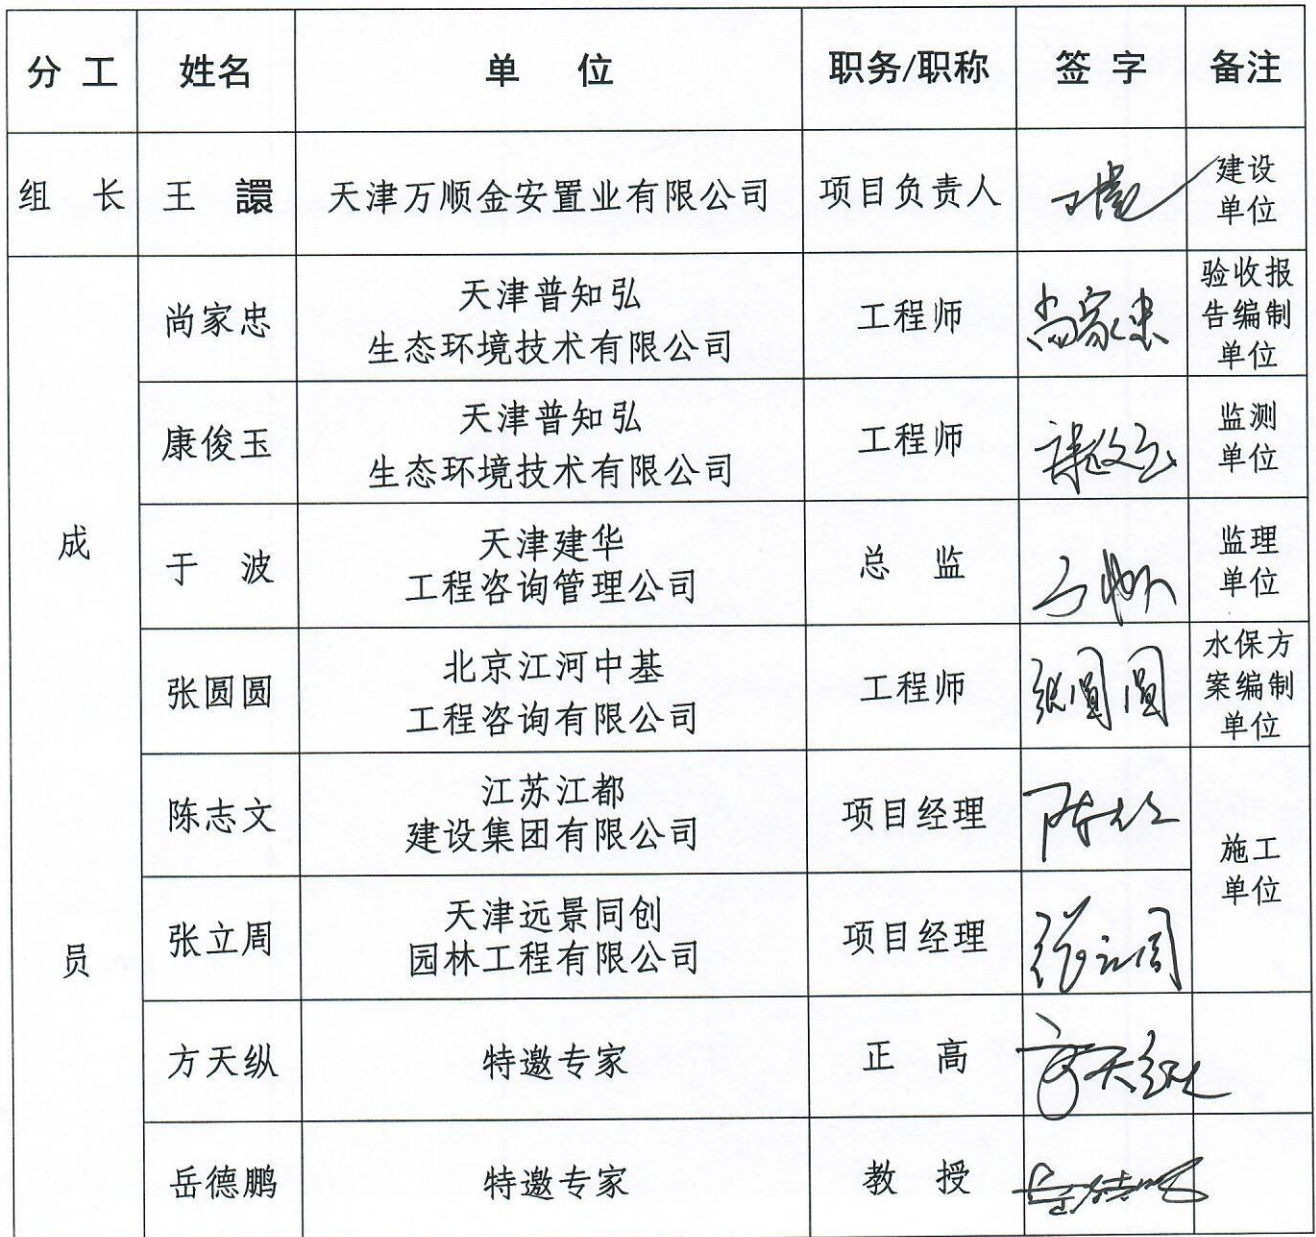 分 工 姓名 单 位 职务/职称 签 字 备注
组 长 王 譞 天津万顺金安置业有限公司 项目负责人 建设
单位
成
员
尚家忠 天津普知弘
生态环境技术有限公司 工程师 尚家忠 验收报
告编制
单位
康俊玉 天津普知弘
生态环境技术有限公司 工程师 康俊玉 监测
单位
于 波 天津建华
工程咨询管理公司 总 监 于波 监理
单位
张圆圆 北京江河中基
工程咨询有限公司 工程师 张圆圆 水保方
案编制
单位
陈志文 江苏江都
建设集团有限公司 项目经理 陈志文 施工
单位
张立周 天津远景同创
园林工程有限公司 项目经理 张立周
方天纵 特邀专家 正 高 方天纵
岳德鹏 特邀专家 教 授 岳德鹏